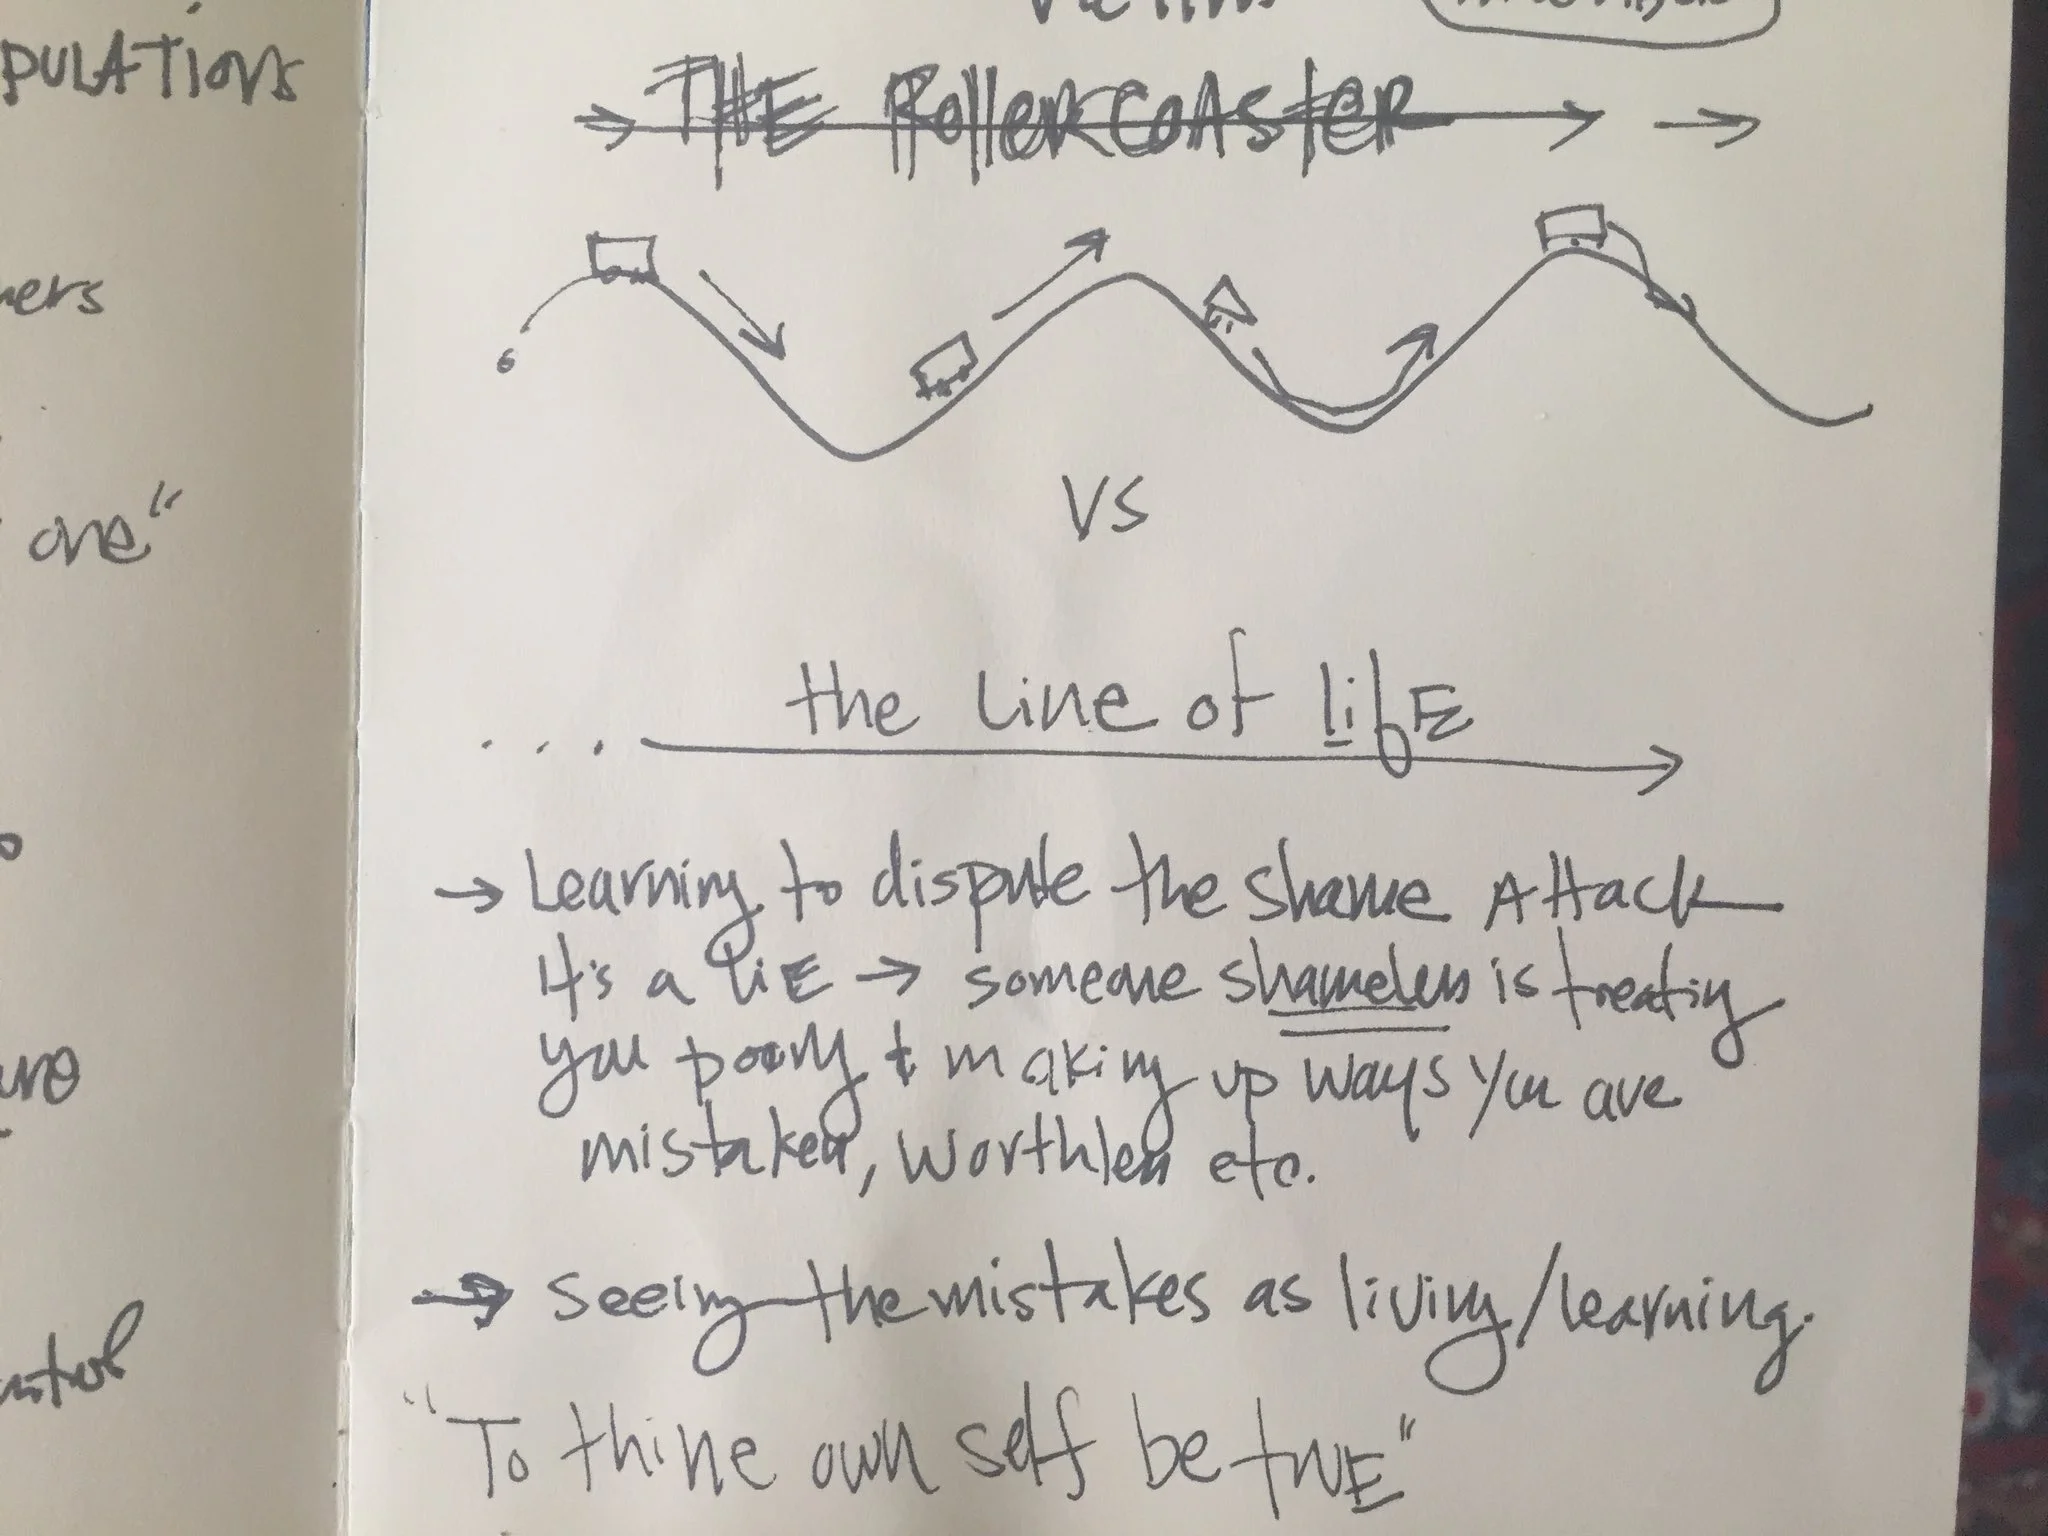 PULATIONS
one"
THE ROLLERCOASTER
6
VS
the Line of lifE
→ Learning to dispute the shame Attack
It's a LiE → someone shameless is treating
you poorly & making up ways you are
mistaken, worthless etc.
→ Seeing the mistakes as living/learning.
"To thine own self be truE"